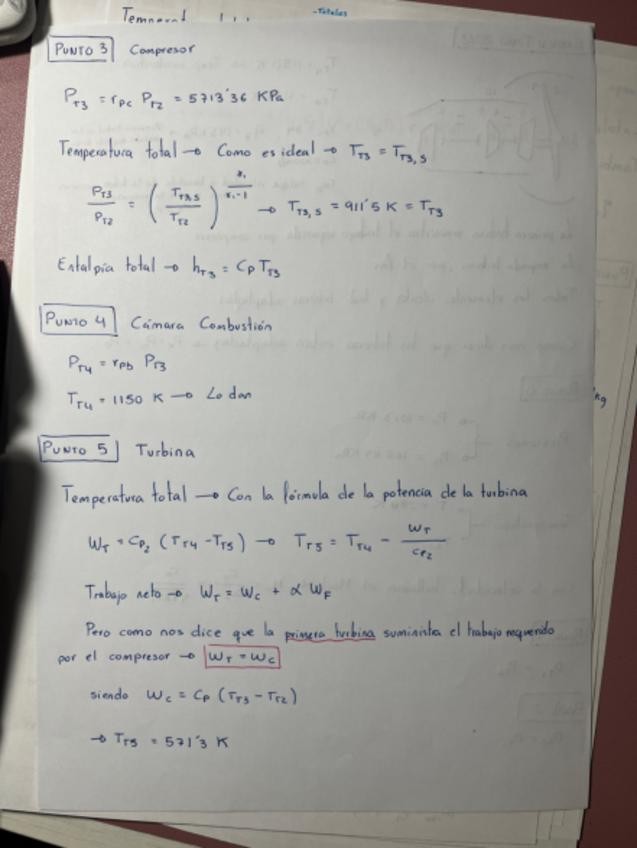 Temperat
-Totales
PUNTO 3 Compresor
P_T3 = r_pc P_T2 = 5713'36 KPa
Temperatura total → Como es ideal → T_T3 = T_T3,s
P_T3 / P_T2 = ( T_T3,s / T_T2 )^(γ₁ / γ₁-1) → T_T3,s = 911'5 K = T_T3
Entalpía total → h_T3 = Cp T_T3
PUNTO 4 Cámara Combustión
P_T4 = r_pb P_T3
T_T4 = 1150 K → Lo dan
kg
PUNTO 5 Turbina
Temperatura total → Con la fórmula de la potencia de la turbina
W_T = Cp₂ (T_T4 - T_T5) → T_T5 = T_T4 - W_T / Cp₂
Trabajo neto → W_T = W_C + α W_F
Pero como nos dice que la primera turbina suministra el trabajo requerido
por el compresor → W_T = W_C
siendo W_C = Cp (T_T3 - T_T2)
→ T_T5 = 571'3 K